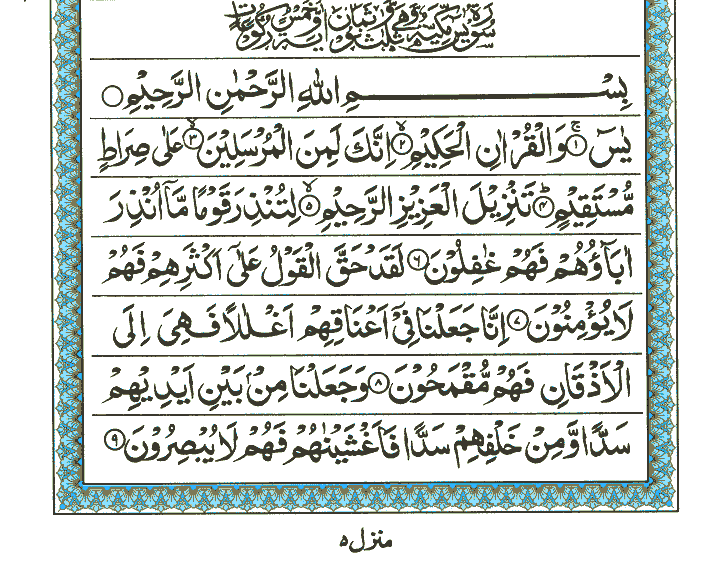 سورة يس مكية وهي ثلث وثمانون اية وخمس ركوعات
بِسْمِ اللهِ الرَّحْمٰنِ الرَّحِيْمِ ○
يٰسٓ ۚ﴿۱﴾ وَالْقُرْاٰنِ الْحَكِيْمِ ۙ﴿۲﴾ اِنَّكَ لَمِنَ الْمُرْسَلِيْنَ ۙ﴿۳﴾ عَلٰى صِرَاطٍ
مُّسْتَقِيْمٍ ؕ﴿۴﴾ تَنْزِيْلَ الْعَزِيْزِ الرَّحِيْمِ ۙ﴿۵﴾ لِتُنْذِرَ قَوْمًا مَّاۤ اُنْذِرَ
اٰبَآؤُهُمْ فَهُمْ غٰفِلُوْنَ ﴿۶﴾ لَقَدْ حَقَّ الْقَوْلُ عَلٰٓى اَكْثَرِهِمْ فَهُمْ
لَا يُؤْمِنُوْنَ ﴿۷﴾ اِنَّا جَعَلْنَا فِيْۤ اَعْنَاقِهِمْ اَغْلٰلًا فَهِيَ اِلَى
الْاَذْقَانِ فَهُمْ مُّقْمَحُوْنَ ﴿۸﴾ وَجَعَلْنَا مِنْۢ بَيْنِ اَيْدِيْهِمْ
سَدًّا وَّمِنْ خَلْفِهِمْ سَدًّا فَاَغْشَيْنٰهُمْ فَهُمْ لَا يُبْصِرُوْنَ ﴿۹﴾
منزل ۵